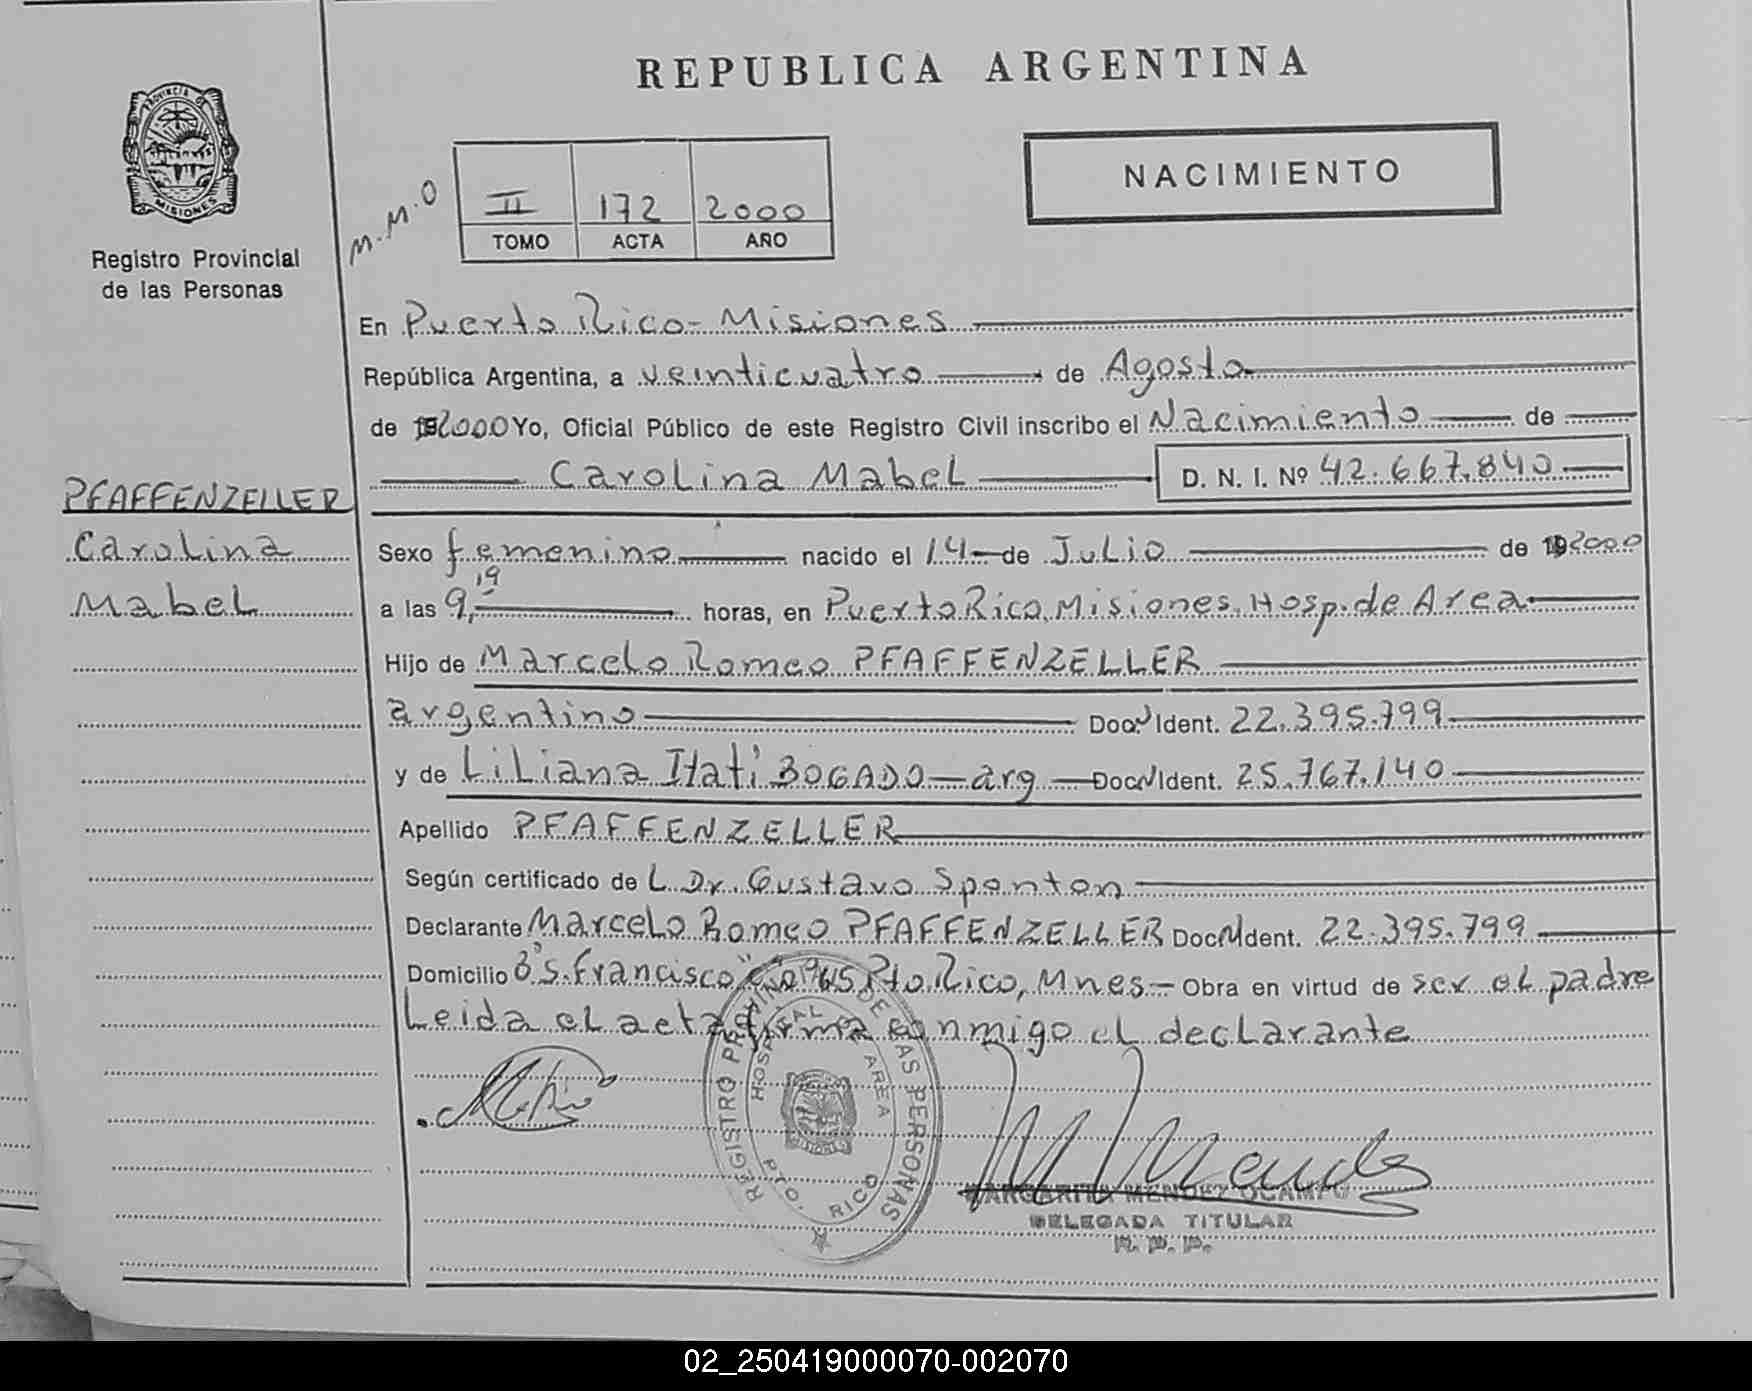 REPUBLICA ARGENTINA
PROVINCIA DE
MISIONES
Registro Provincial
de las Personas
M.M.O
II 172 2000
TOMO ACTA AÑO
NACIMIENTO
En Puerto Rico - Misiones
República Argentina, a veinticuatro de Agosto
de 2000 Yo, Oficial Público de este Registro Civil inscribo el Nacimiento de
Carolina Mabel D. N. I. Nº 42.667.840
PFAFFENZELLER
Carolina
Mabel
Sexo femenino nacido el 14 de Julio de 2000
a las 9,19 horas, en Puerto Rico, Misiones, Hosp. de Area
Hijo de Marcelo Romeo PFAFFENZELLER
argentino Doc. Ident. 22.395.799
y de Liliana Itatí BOGADO - arg Doc. Ident. 25.767.140
Apellido PFAFFENZELLER
Según certificado de L Dr. Gustavo Sponton
Declarante Marcelo Romeo PFAFFENZELLER Doc. Ident. 22.395.799
Domicilio Bº S. Francisco Pto Rico, Mnes. - Obra en virtud de ser el padre
Leida el acta firma conmigo el declarante
REGISTRO PROVINCIAL DE LAS PERSONAS
HOSPITAL DE AREA
MISIONES
PTO. RICO
MARGARITA MENDEZ OCAMPO
DELEGADA TITULAR
R. P. P.
02_250419000070-002070